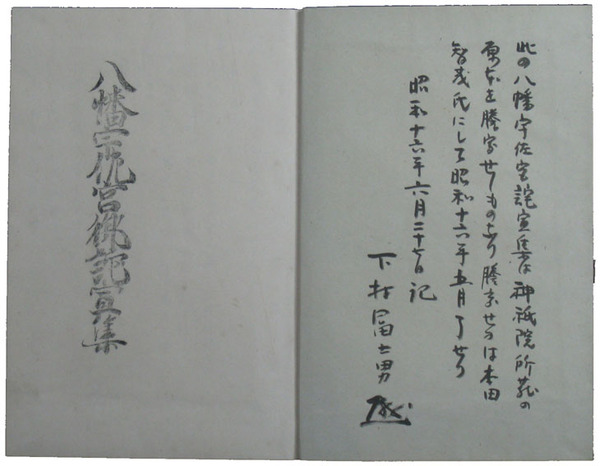 此の八幡宇佐宮詫宣集は神祇院所蔵の
原本を謄写せしものなり謄写せるは本田
智茂氏にして昭和十六年五月了せり
昭和十六年六月二十七日記
下村冨士男
八幡宇佐宮御託宣集